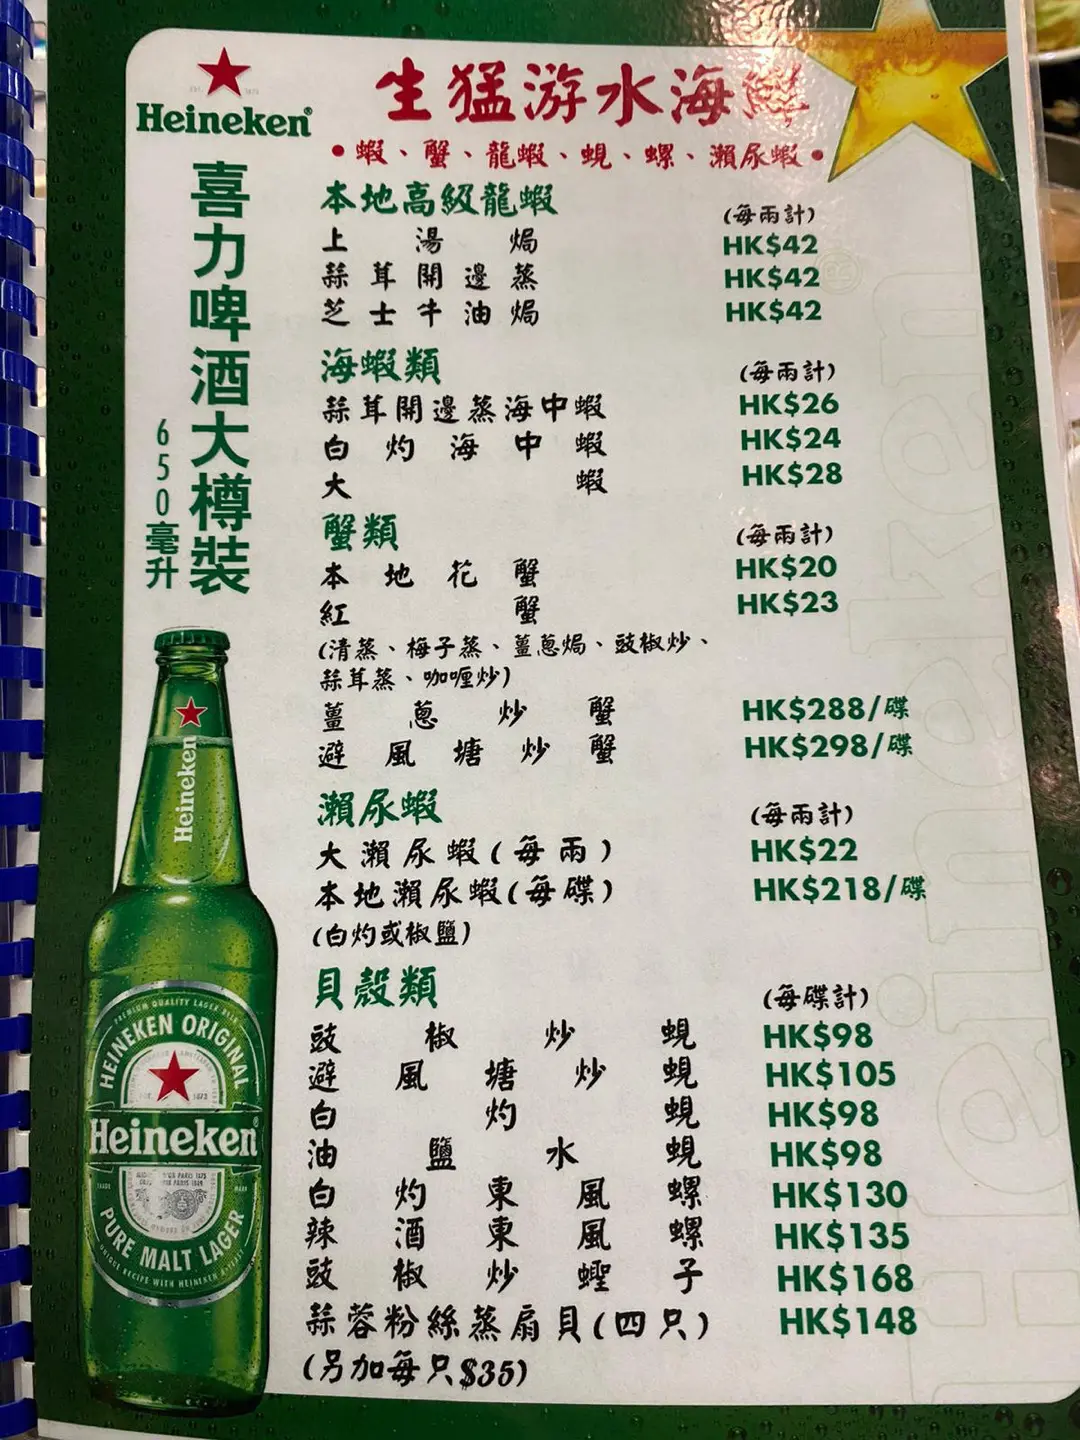 Heineken®
生猛游水海鮮
•蝦、蟹、龍蝦、蜆、螺、瀨尿蝦•
喜力啤酒大樽裝
650毫升
本地高級龍蝦 (每兩計)
上湯焗 HK$42
蒜茸開邊蒸 HK$42
芝士牛油焗 HK$42
海蝦類 (每兩計)
蒜茸開邊蒸海中蝦 HK$26
白灼海中蝦 HK$24
大蝦 HK$28
蟹類 (每兩計)
本地花蟹 HK$20
紅蟹 HK$23
(清蒸、梅子蒸、薑蔥焗、豉椒炒、
蒜茸蒸、咖喱炒)
薑蔥炒蟹 HK$288/碟
避風塘炒蟹 HK$298/碟
瀨尿蝦 (每兩計)
大瀨尿蝦(每兩) HK$22
本地瀨尿蝦(每碟) HK$218/碟
(白灼或椒鹽)
貝殼類 (每碟計)
豉椒炒蜆 HK$98
避風塘炒蜆 HK$105
白灼蜆 HK$98
油鹽水蜆 HK$98
白灼東風螺 HK$130
辣酒東風螺 HK$135
豉椒炒蟶子 HK$168
蒜蓉粉絲蒸扇貝(四只) HK$148
(另加每只$35)
Heineken
PREMIUM QUALITY LAGER BEER
HEINEKEN ORIGINAL
Heineken
PURE MALT LAGER
Heineken